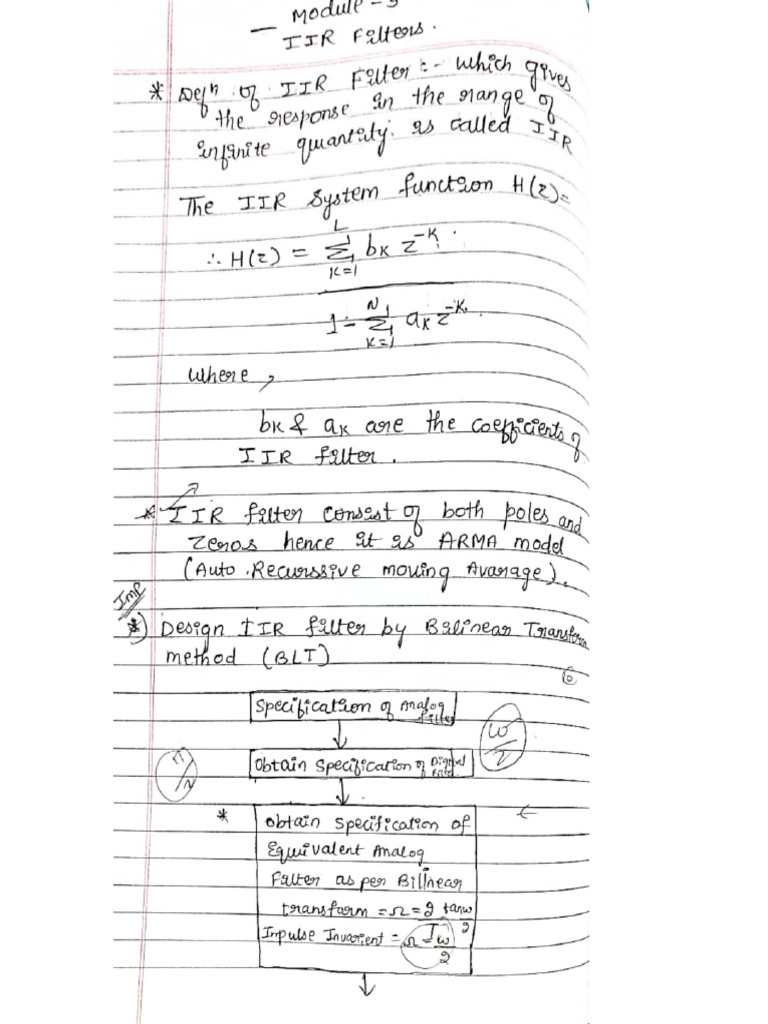 Module -
IIR Filters.
* Defⁿ of IIR Filter :- which gives
the response in the range of
infinite quantity. is called IIR
The IIR System function H(z)=
∴ H(z) = L Σ K=1 bK z^-K.
1 - N Σ K=1 aK z^-K.
where,
bK & aK are the coefficients of
IIR filter.
* IIR filter consist of both poles and
zeros hence it is ARMA model
(Auto Recurssive moving Avarage).
Imp
*) Design IIR filter by Bilinear Transform
method (BLT)
Specification of Analog
filter
Obtain Specification of Digital
* obtain specification of
Equivalent Analog
Filter as per Bilinear
transform = Ω = 2 tan ω
T 2
Impulse Invarient = Ω